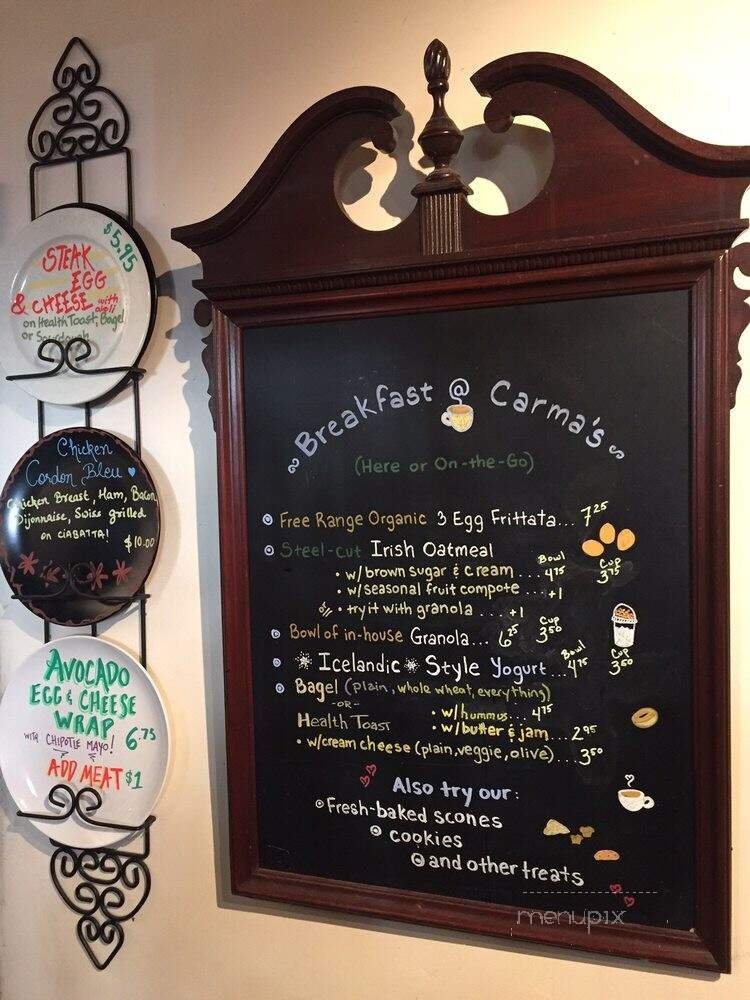 $5.95
STEAK
EGG
& CHEESE with aioli
on Health Toast, Bagel
or Sourdough
Chicken
Cordon Bleu
Chicken Breast, Ham, Bacon
Dijonnaise, Swiss grilled
on CIABATTA!
$10.00
AVOCADO
EGG & CHEESE
WRAP
WITH CHIPOTLE MAYO! 6.75
ADD MEAT $1
Breakfast @ Carma's
(Here or On-the-Go)
Free Range Organic 3 Egg Frittata... 7.25
Steel-cut Irish Oatmeal
Bowl Cup
• w/brown sugar & cream ... 4.75 3.75
• w/seasonal fruit compote ... +1
• try it with granola ... +1
Bowl of in-house Granola... 6.25 Cup 3.50
Bowl Cup
Icelandic Style Yogurt... 4.75 3.50
Bagel (plain, whole wheat, everything)
-OR-
Health Toast
• w/hummus... 4.75
• w/butter & jam... 2.95
• w/cream cheese (plain, veggie, olive)... 3.50
Also try our:
Fresh-baked scones
cookies
and other treats
menupix